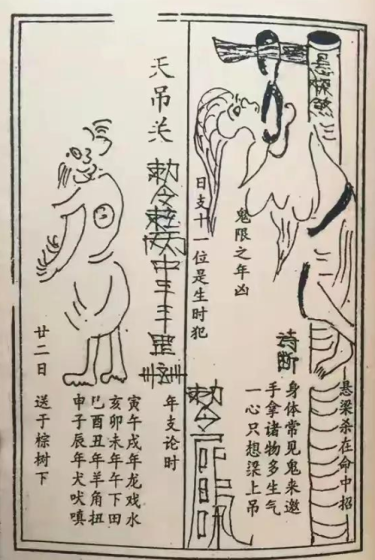 悬梁煞
悬梁杀在命中招
诗断
身体常见鬼来邀
手拿诸物多生气
一心只想梁上吊
鬼限之年凶
日支十一位是生时犯
敕令
天吊关
敕令
年支论时
寅午戌年龙戏水
亥卯未年午下田
巳酉丑年羊角扭
申子辰年犬吠嗔
廿二日 送于棕树下